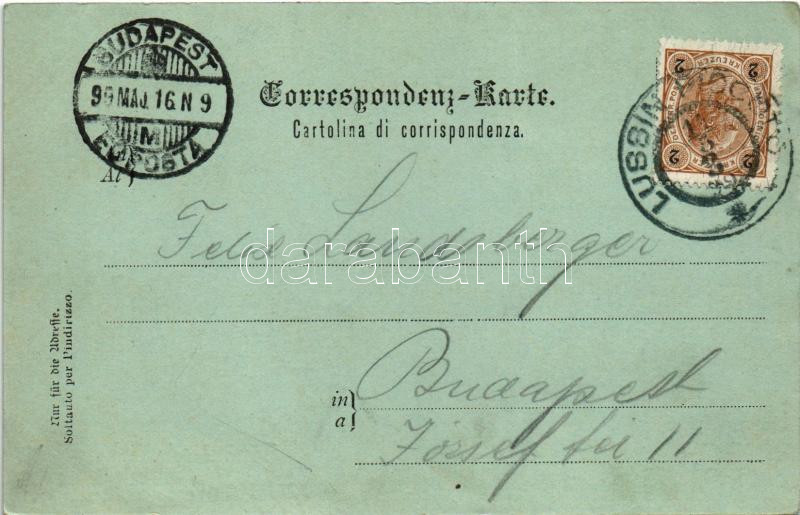 BUDAPEST
99 MAJ. 16. N 9
M
FŐPOSTA
KREUZER
2
2
2
2
LUSSIN
Correspondenz-Karte.
Cartolina di corrispondenza.
Felix Landsberger
darabanth
in
a
Budapest
József tér 11
Nur für die Adresse.
Soltauto per l'indirizzo.